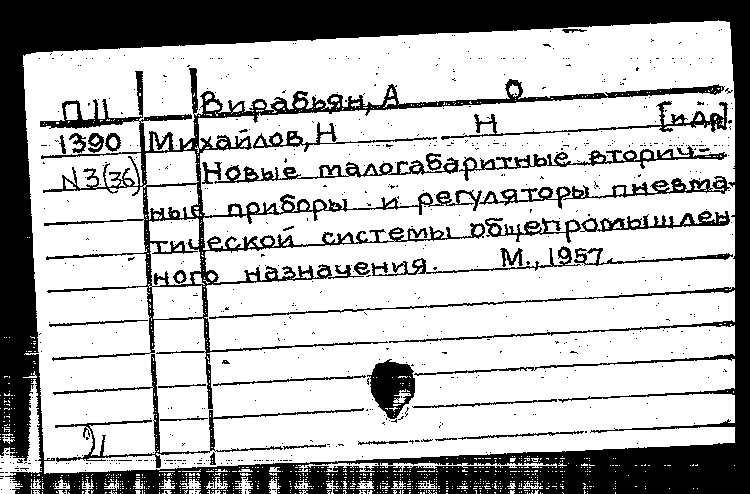 П 11 Вирабьян, А О
1390 Михайлов, Н Н [и др].
N3(36) Новые малогабаритные вторич-
ные приборы и регуляторы пневма-
тической системы общепромышлен
ного назначения. М., 1957.
21